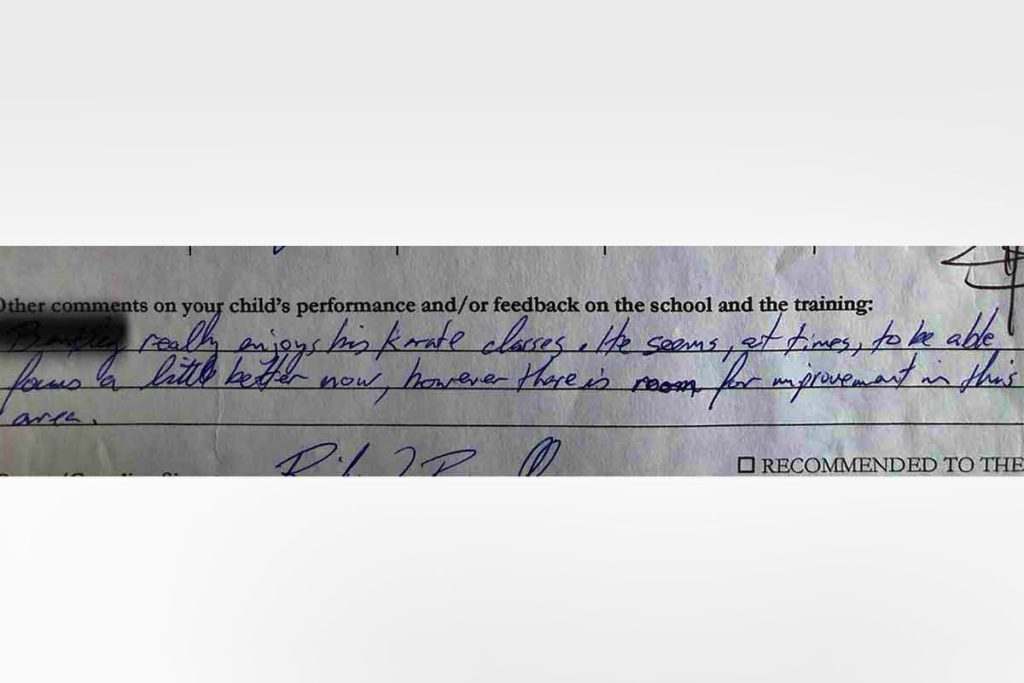 Other comments on your child's performance and/or feedback on the school and the training:
really enjoys his Karate classes. He seems, at times, to be able
focus a little better now, however there is room for improvement in this
area.
☐ RECOMMENDED TO THE